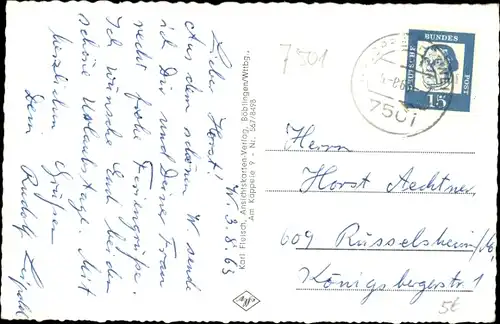 Lieber Horst! W, 3.8.63
Aus dem schönen W. sende
ich Dir und Deiner Frau
recht frohe Feriengrüße.
Ich wünsche Euch beiden
schöne Urlaubstage. Mit
herzlichen Grüßen
Dein Rudolf
Karl Fleisch, Ansichtskarten-Verlag, Böblingen/Württbg.,
Am Käppele 9 - Nr. 367/8498
7501
DEUTSCHE
BUNDES
POST
15
7501
Herrn
Horst Aechtner
609 Rüsselsheim/M,
Königsbergerstr. 1
5€